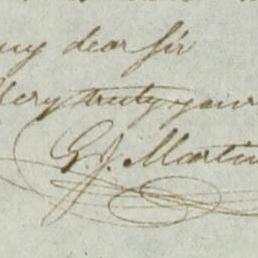 my dear Sir
Very truly your
G. J. Martin